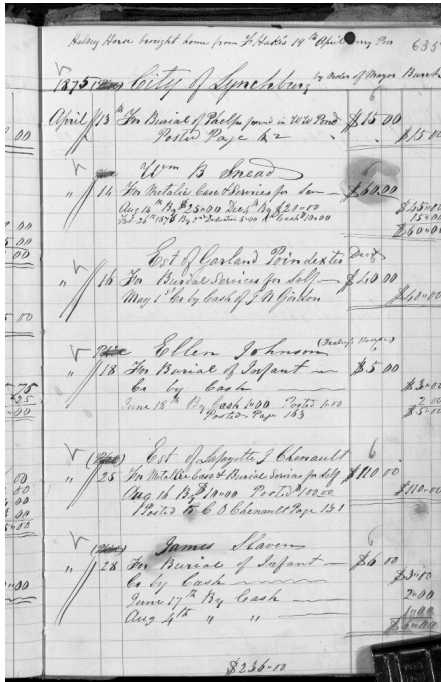 Halsey Horse brought home from 19th April 635
1875 City of Lynchburg by order of Mayor Burch
April 13th For Burial of found in WW Pond $15.00
Posted Page 142 $15.00
Wm B Snead 6
" 14 For Metalic Case & Services for Son — $60.00
Aug 14th By $25=00 Dec 4th By $20=00 $45=00
Feb 26th 1876 By 5=00 Cash 10=00 15=00
$60=00
Est of Garland Poindexter Decd
" 16 For Burial Services for Self — $40.00
May 1st Cr by Cash of J N Gordon $40=00
Ellen Johnson
" 18 For Burial of Infant — $5.00
Cr by Cash — $3=00
June 18th By Cash 1=00 Posted 1=00 2 00
Posted Page 183 $5=00
Est of Lafayette J Chenault 6
" 25 For Metallic Case & Burial Services for Self $110.00
Aug 16 By $10=00 Posted $100.00 $110=00
Posted to C O Chenault Page 131
James Slaven 6
" 28 For Burial of Infant — $6.00
Cr by Cash $3=00
June 17th By Cash — 2=00
Aug 4th " " — 1=00
$6=00
$236=00